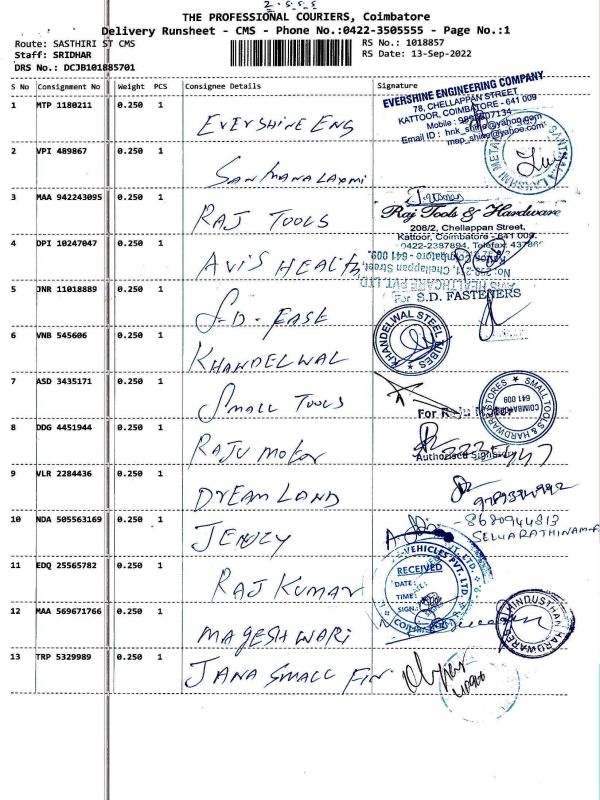 THE PROFESSIONAL COURIERS, Coimbatore
Delivery Runsheet - CMS - Phone No.:0422-3505555 - Page No.:1
Route: SASTHIRI ST CMS
RS No.: 1018857
Staff: SRIDHAR
RS Date: 13-Sep-2022
DRS No.: DCJB101885701
S No Consignment No Weight PCS Consignee Details Signature
1 MTP 1180211 0.250 1 EVERSHINE ENG
EVERSHINE ENGINEERING COMPANY
78, CHELLAPPAN STREET
KATTOOR, COIMBATORE - 641 009
Mobile :
Email ID :
2 VPI 489867 0.250 1 SANMANALAXMI
3 MAA 942243095 0.250 1 RAJ TOOLS
Raj Tools & Hardware
208/2, Chellappan Street,
Kattoor, Coimbatore - 641 009.
0422-2387894, Telefax:
4 DPI 10247047 0.250 1 AVIS HEALTH
No. Chellappan Street,
AVIS HEALTHCARE PVT LTD
5 JNR 11018889 0.250 1 S-D-FASE
For S.D. FASTENERS
6 VNB 545606 0.250 1 KHANDELWAL
KHANDELWAL STEEL TUBES
7 ASD 3435171 0.250 1 SMALL TOOLS
SMALL TOOLS & HARDWARE STORES
COIMBATORE
641 009
8 DDG 4451944 0.250 1 RAJU MOTOR
For Raju Motor
Authorised Signatory
9 VLR 2284436 0.250 1 DREAM LAND
10 NDA 505563169 0.250 1 JENZY
- 8680944813
SELVARATHINAM
11 EDQ 25565782 0.250 1 RAJ KUMAR
VEHICLES PVT. LTD.
RECEIVED
DATE :
TIME :
SIGN :
12 MAA 569671766 0.250 1 MAGESHWARI
HINDUSTHAN HARDWARE
13 TRP 5329989 0.250 1 JANA SMALL FIN.